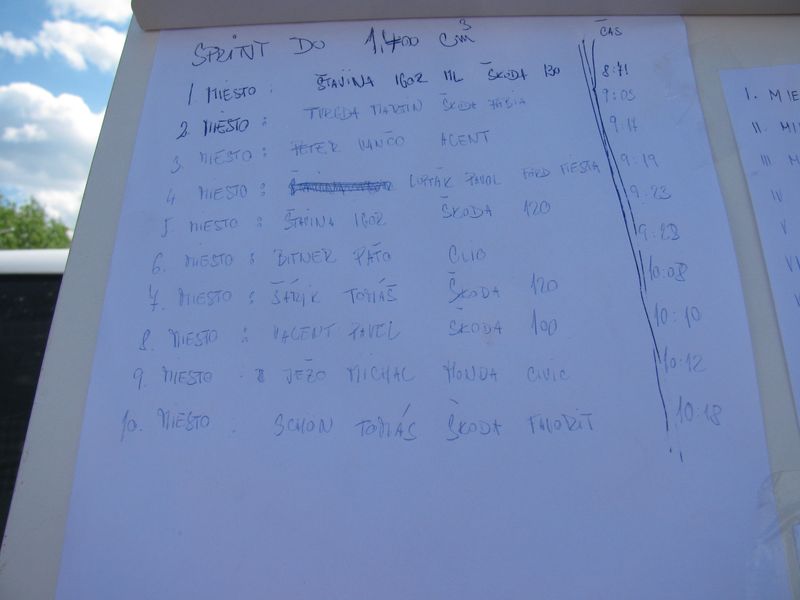 SPRINT DO 1.400 cm³
ČAS
1. MIESTO : ŠTAVINA IGOR ML ŠKODA 130 8:71
2. MIESTO : TVRDA MARTIN ŠKODA FABIA 9:05
3. MIESTO : PETER VANČO ACENT 9:11
4 MIESTO : LUPTÁK PAVOL FORD FIESTA 9:19
5. MIESTO : ŠTAVINA IGOR ŠKODA 120 9:23
6. MIESTO : BITNER PAŤO CLIO 9:28
7. MIESTO : ŠÁRIK TOMÁŠ ŠKODA 120 10:08
8. MIESTO : VACENT PAVEL ŠKODA 100 10:10
9. MIESTO : JEŽO MICHAL HONDA CIVIC 10:12
10. MIESTO : SCHON TOMÁŠ ŠKODA FAVORIT 10:18
I. MIE
II. MI
III M
IV
V
VI